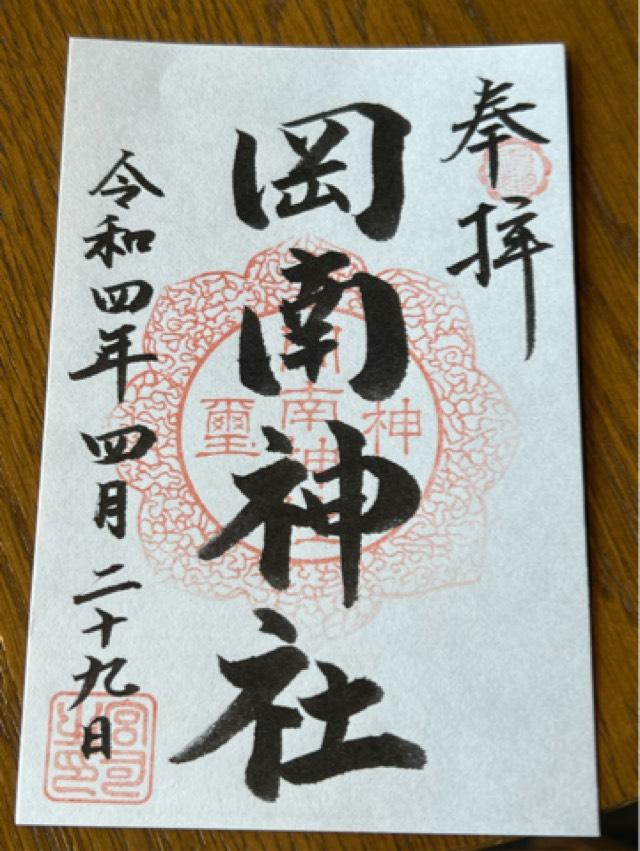 奉拝
岡南神社
令和四年四月二十九日
神
璽